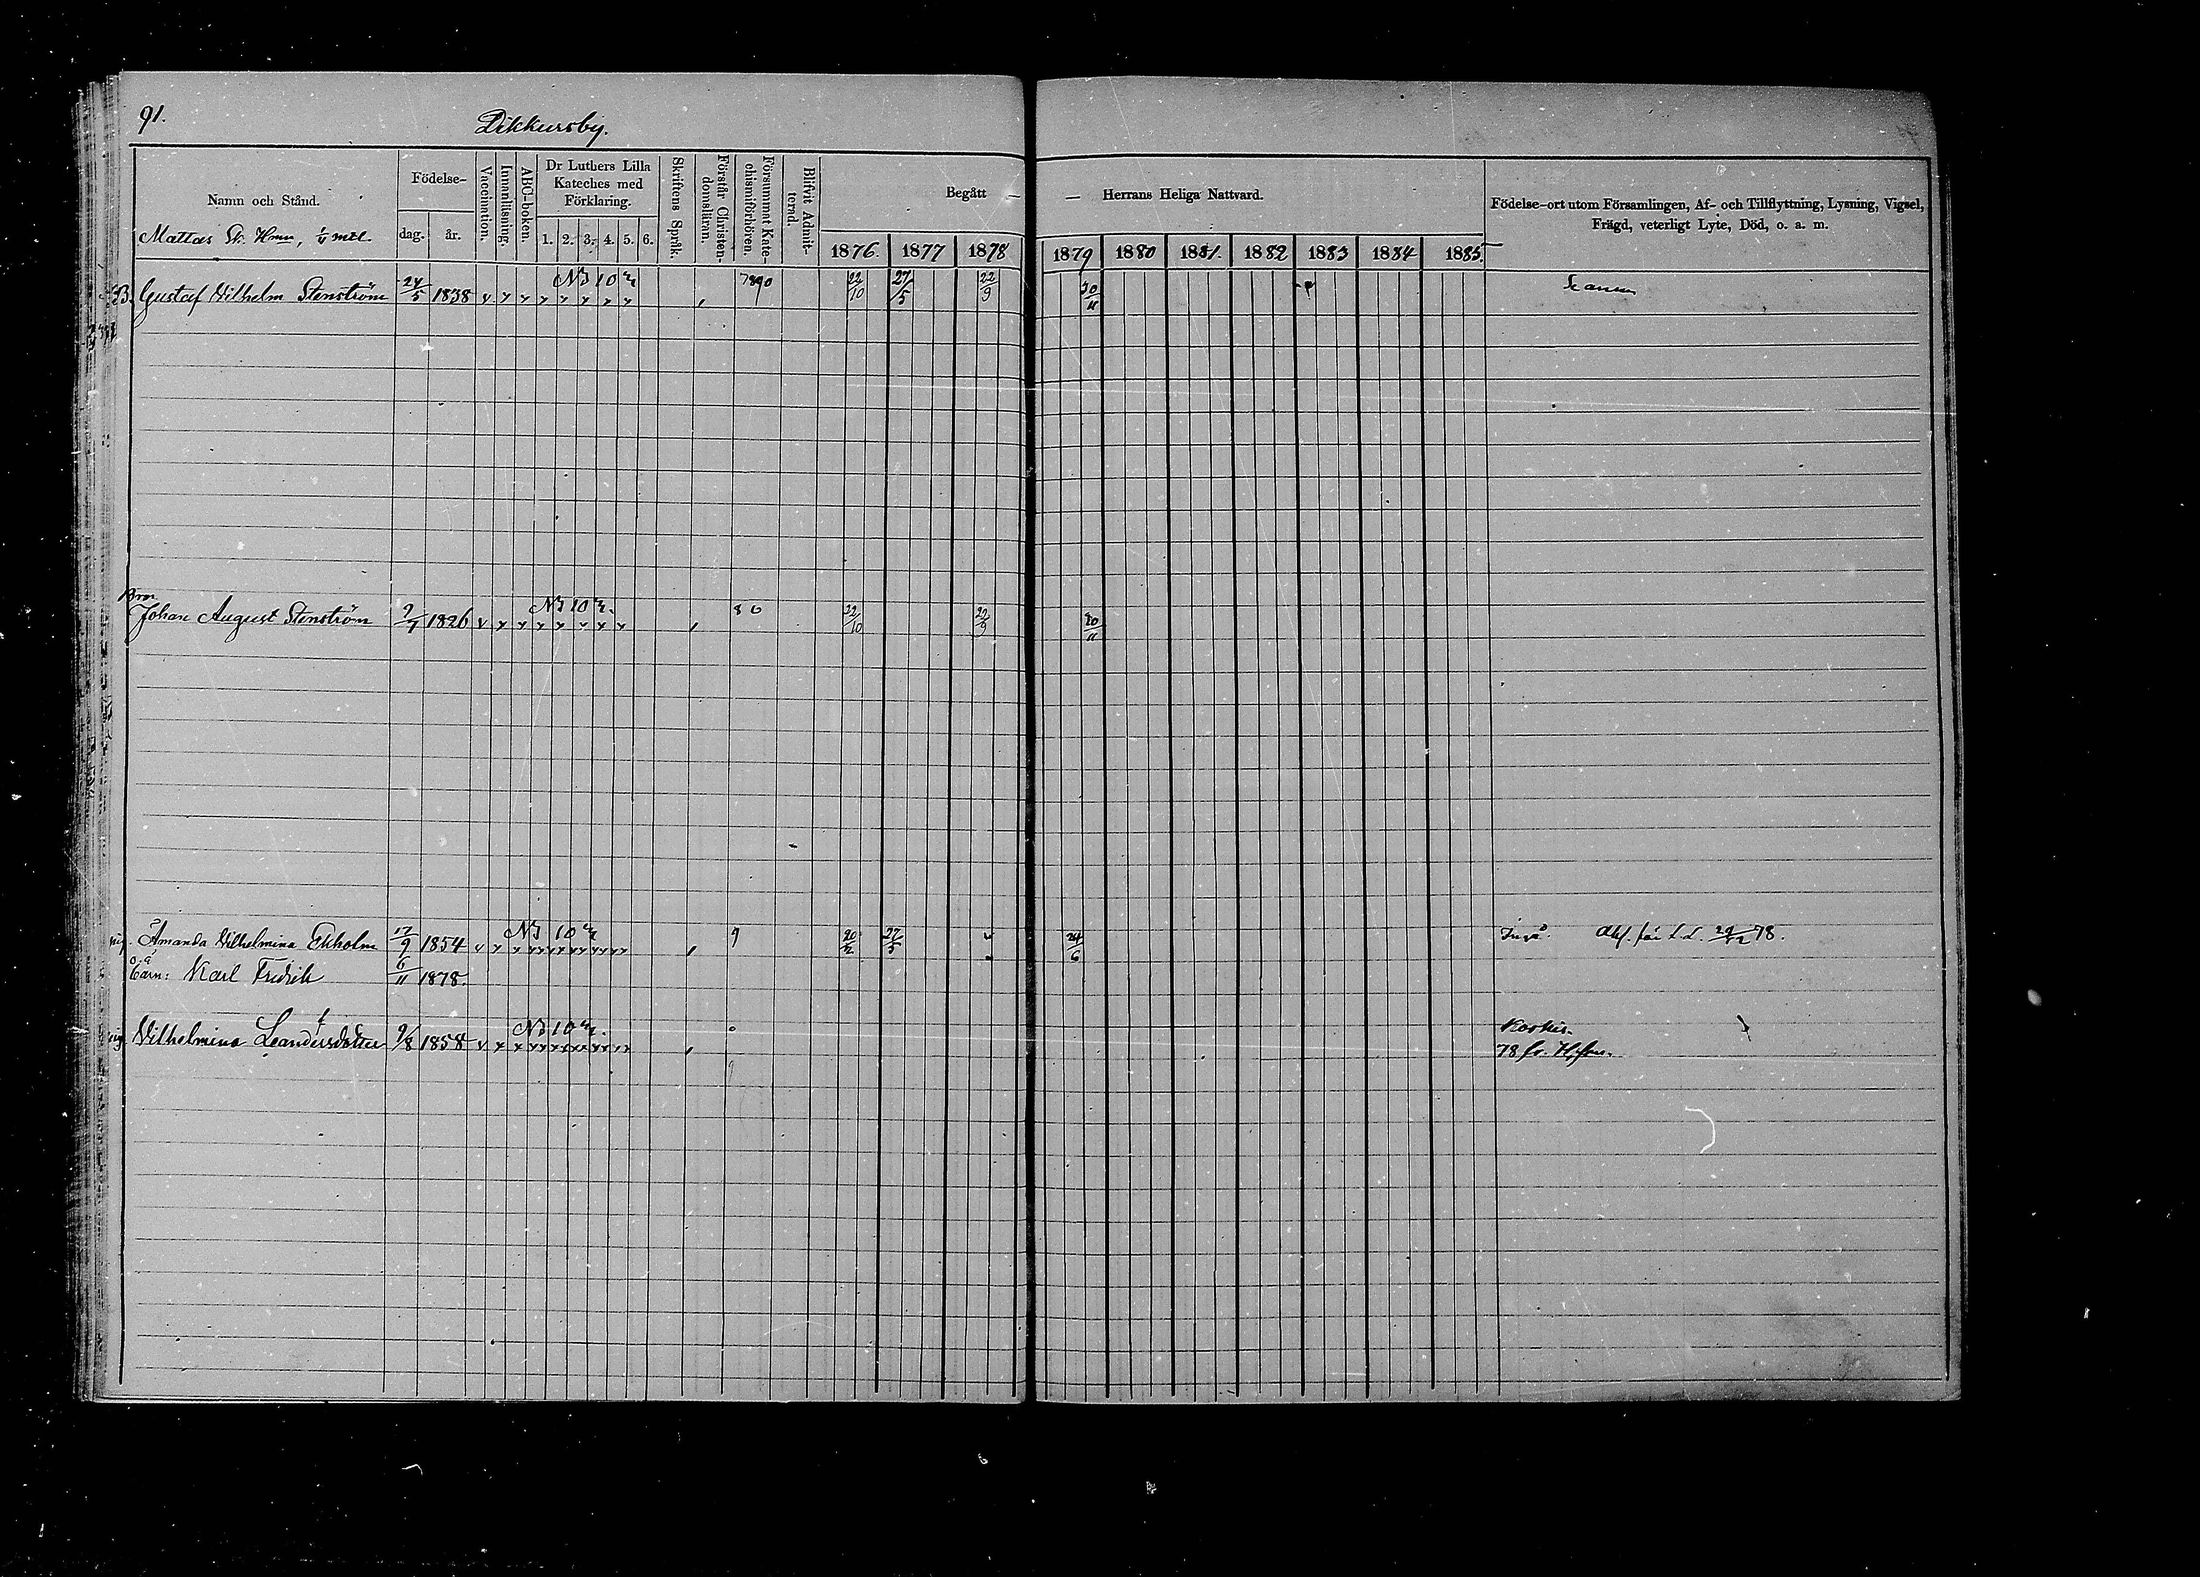 91.
Dikkursby.
Namn och Stånd.
Födelse-
dag.
år.
Vaccination.
Innanläsning.
ABC-boken.
Dr Luthers Lilla
Kateches med
Förklaring.
1. 2. 3. 4. 5. 6.
Skriftens Språk.
Förstår Christen-
domsläran.
Försummat Kate-
chismiförhören.
Blifvit Admit-
terad.
Begått — — Herrans Heliga Nattvard.
1876. 1877 1878 1879 1880 1881. 1882 1883 1884 1885.
Födelse-ort utom Församlingen, Af- och Tillflyttning, Lysning, Vigsel,
Frägd, veterligt Lyte, Död, o. a. m.
Mattas 1/4 mtl.
B. Gustaf Vilhelm Stenström 24/5 1838 v v v v v v v v 22/10 27/5 22/9 30/11
Bror
Johan August Stenström 9/7 1826 v v v v v v v v 80 22/10 22/9 30/11
pig. Amanda Vilhelmina Ekholm 17/9 1854 9 20/2 27/5 24/6 Ingå. 78.
o ä
Barn: Karl Fredrik 6/11 1878.
pig. Vilhelmina Leandersdotter 9/8 1858
78 fr.